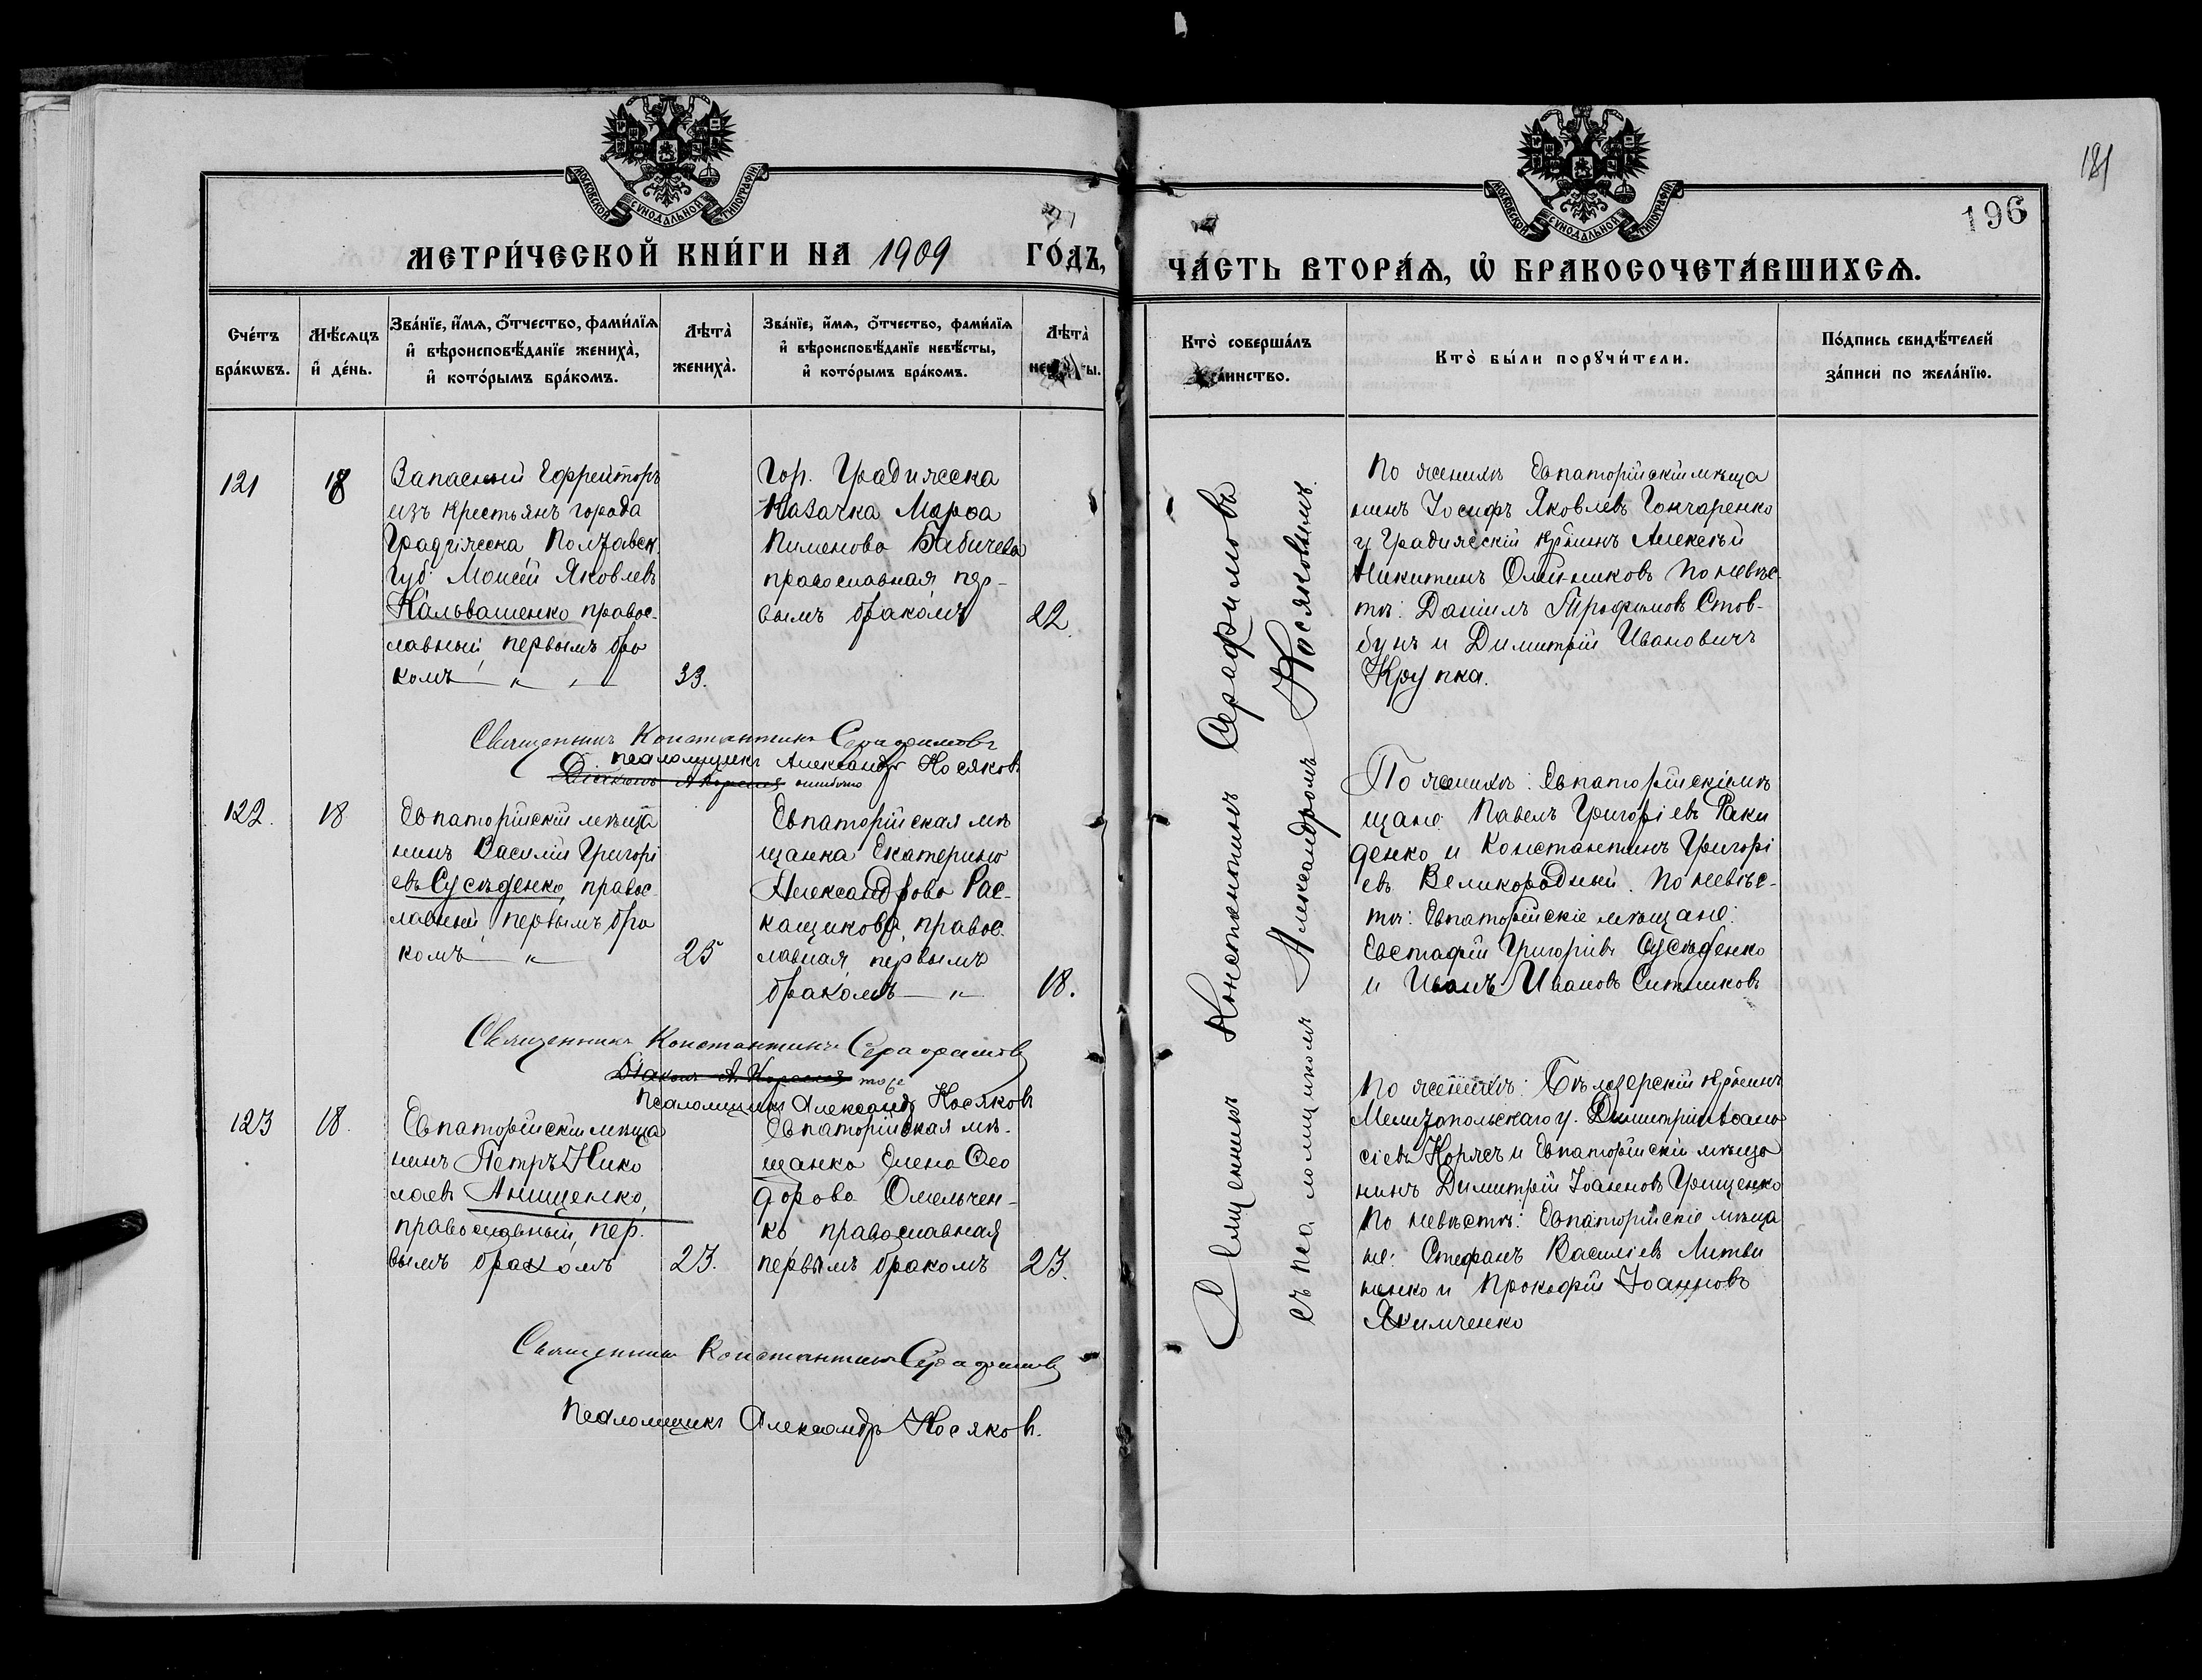 181
196
МОСКОВСКОЙ СУНОДАЛЬНОЙ ТИПОГРАФІИ
МОСКОВСКОЙ СУНОДАЛЬНОЙ ТИПОГРАФІИ
МЕТРИ́ЧЕСКОЙ КНИ́ГИ НА 1909 ГО́ДЪ,
ЧА́СТЬ ВТОРА́Ѧ, Ѡ҆ БРАКОСОЧЕТА́ВШИХСѦ.
Сче́тъ
бра́кѡвъ.
Мѣ́сѧцъ
и҆ де́нь.
Зва́нїе, и҆́мѧ, ѻ҆́тчество, фами́лїѧ
и҆ вѣроисповѣ́данїе жениха̀,
и҆ кото́рымъ бра́комъ.
Лѣ́та̀
жениха̀.
Зва́нїе, и҆́мѧ, ѻ҆́тчество, фами́лїѧ
и҆ вѣроисповѣ́данїе невѣ́сты,
и҆ кото́рымъ бра́комъ.
Лѣ́та̀
Кто̀ соверша́лъ
Кто̀ бы́ли порꙋчи́тели.
По́дпись свидѣ́телей
за́писи по жела́нїю.
121
18
Запасный Ефрейторъ
изъ крестьянъ города
Градижска Полтавск.
губ. Моисей Яковлевъ
Кальвашенко правос-
лавный, первымъ бра
комъ
33.
Гор. Градижска
Казачка Марѳа
Пименова Бабичева
православная пер-
вымъ бракомъ
22.
По женихѣ Евпаторійскій мѣща
нинъ Іосифъ Яковлевъ Гончаренко
и Градижскій кр-нинъ Алексѣй
Никитинъ Олейниковъ По невѣс-
тѣ: Даніилъ Трофимовъ Стов-
бунъ и Димитрій Ивановичъ
Крупка.
Священникъ Константинъ Серафимовъ
Псаломщикъ Александръ Косяковъ
ошибочно
122.
18
Евпаторійскій мѣща
нинъ Василій Григорі
евъ Сусѣденко, правос-
лавный, первымъ бра
комъ
25
Евпаторійская мѣ
щанка Екатерина
Александрова Рас-
кащикова, правос-
лавная, первымъ
бракомъ
18.
По женихѣ: Евпаторійскіе мѣ
щане Павелъ Григорьевъ Раки
денко и Константинъ Григорі
евъ Великородный. По невѣс-
тѣ: Евпаторійскіе мѣщане:
Евстафій Григоріевъ Сусѣденко
и Иванъ Ивановъ Ситниковъ
Священникъ Константинъ Серафимовъ
Псаломщикъ Александръ Косяковъ
123
18.
Евпаторійскій мѣща
нинъ Петръ Нико
лаевъ Анищенко,
православный, пер-
вымъ бракомъ
23.
Евпаторійская мѣ-
щанка Елена Ѳео
дорова Омельчен-
ко православная
первымъ бракомъ
23.
По женихѣ: Бѣлозерскій кр-нинъ
Мелитопольскаго у. Димитрій Аѳана
сіевъ Коржъ и Евпаторійскій мѣща
нинъ Димитрій Іоанновъ Грищенко
По невѣстѣ: Евпаторійскіе мѣща
не: Стефанъ Василіевъ Литви
ненко и Прокофій Іоанновъ
Якимченко
Священникъ Константинъ Серафимовъ
Псаломщикъ Александръ Косяковъ.
Священникъ Константинъ Серафимовъ
съ псаломщикомъ Александромъ Косяковымъ.